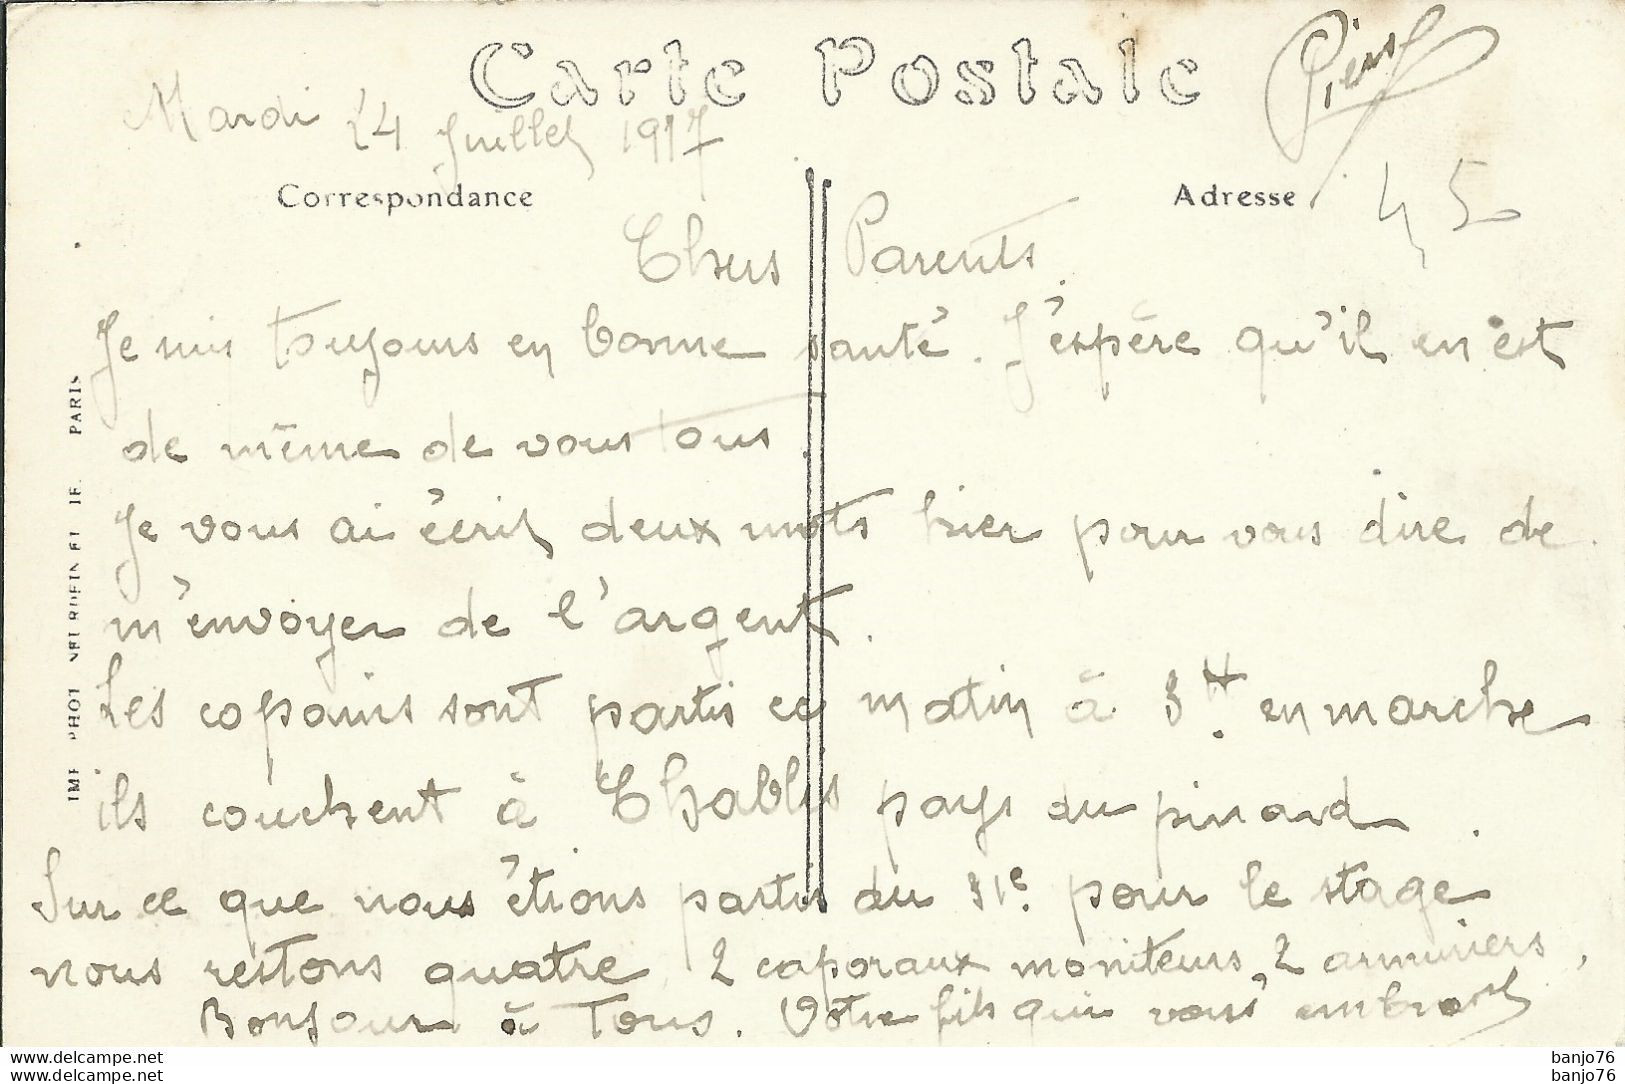 Carte Postale
Pierre
Mardi 24 Juillet 1917
45
Correspondance
Adresse
Chers Parents.
Je suis toujours en bonne santé. J'espère qu'il en est
de même de vous tous.
Je vous ai écrit deux mots hier pour vous dire de
m'envoyer de l'argent.
Les copains sont partis ce matin à 3H. en marche
ils couchent à Chablis pays du pinard.
Sur ce que nous étions partis du 31e. pour le stage
nous restons quatre, 2 caporaux moniteurs, 2 armuriers,
Bonjour à Tous. Votre fils qui vous embrasse
IMP PHOT NEURDEIN ET IE PARIS
delcampe.net
delcampe.net
banjo76
banjo76